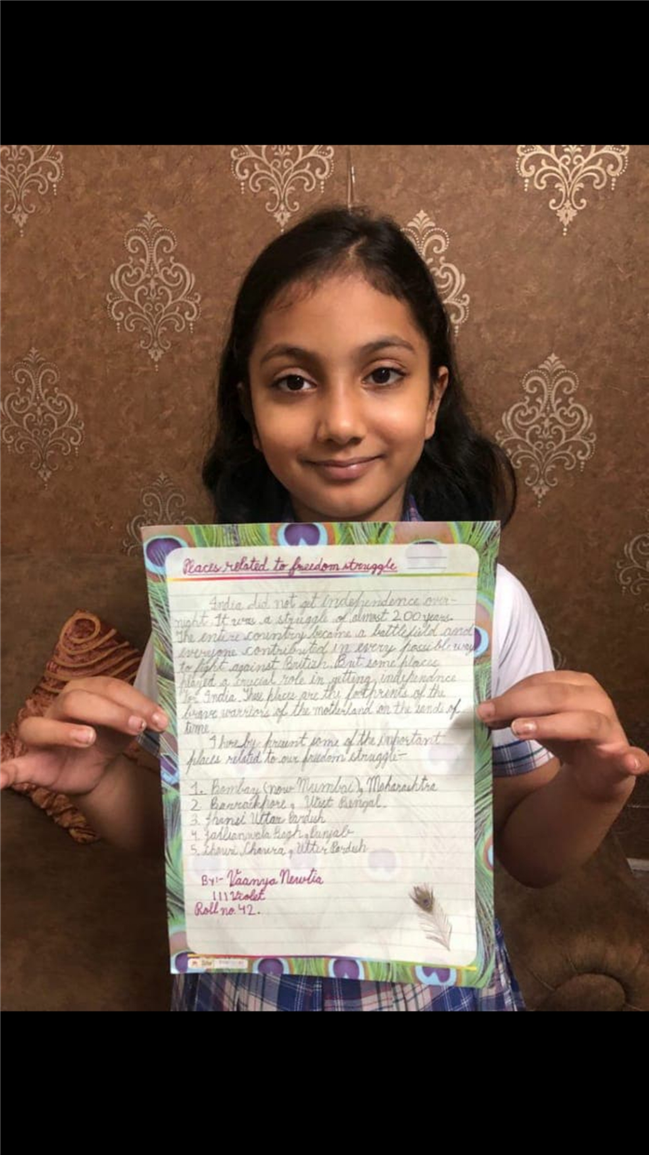 Places related to freedom struggle
India did not get independence over-
night. It was a struggle of almost 200 years.
The entire country became a battlefield and
everyone contributed in every possible way
to fight against British. But some places
played a crucial role in getting independence
for India. These places are the footprints of the
brave warriors of the motherland on the sands of
time.
I here by present some of the important
places related to our freedom struggle:-
1. Bombay (now Mumbai), Maharashtra
2. Barrackpore, West Bengal.
3. Jhansi Uttar Pardesh
4. Jallianwala Bagh, Punjab
5. Chauri Chaura, Utter Pardesh
By:- Vaanya Newtia
III Violet
Roll no. 42.